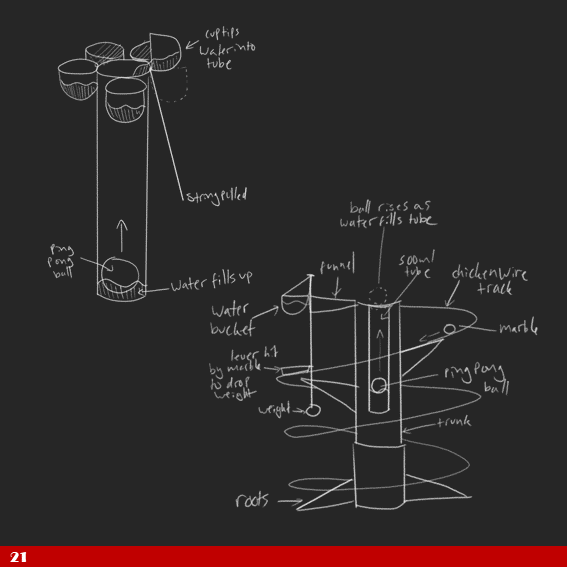 cup tips
water into
tube
string pulled
ping
pong
ball
water fills up
ball rises as
water fills tube
funnel
500ml
tube
chickenwire
track
water
bucket
marble
lever hit
by marble
to drop
weight
ping pong
ball
weight
trunk
roots
21